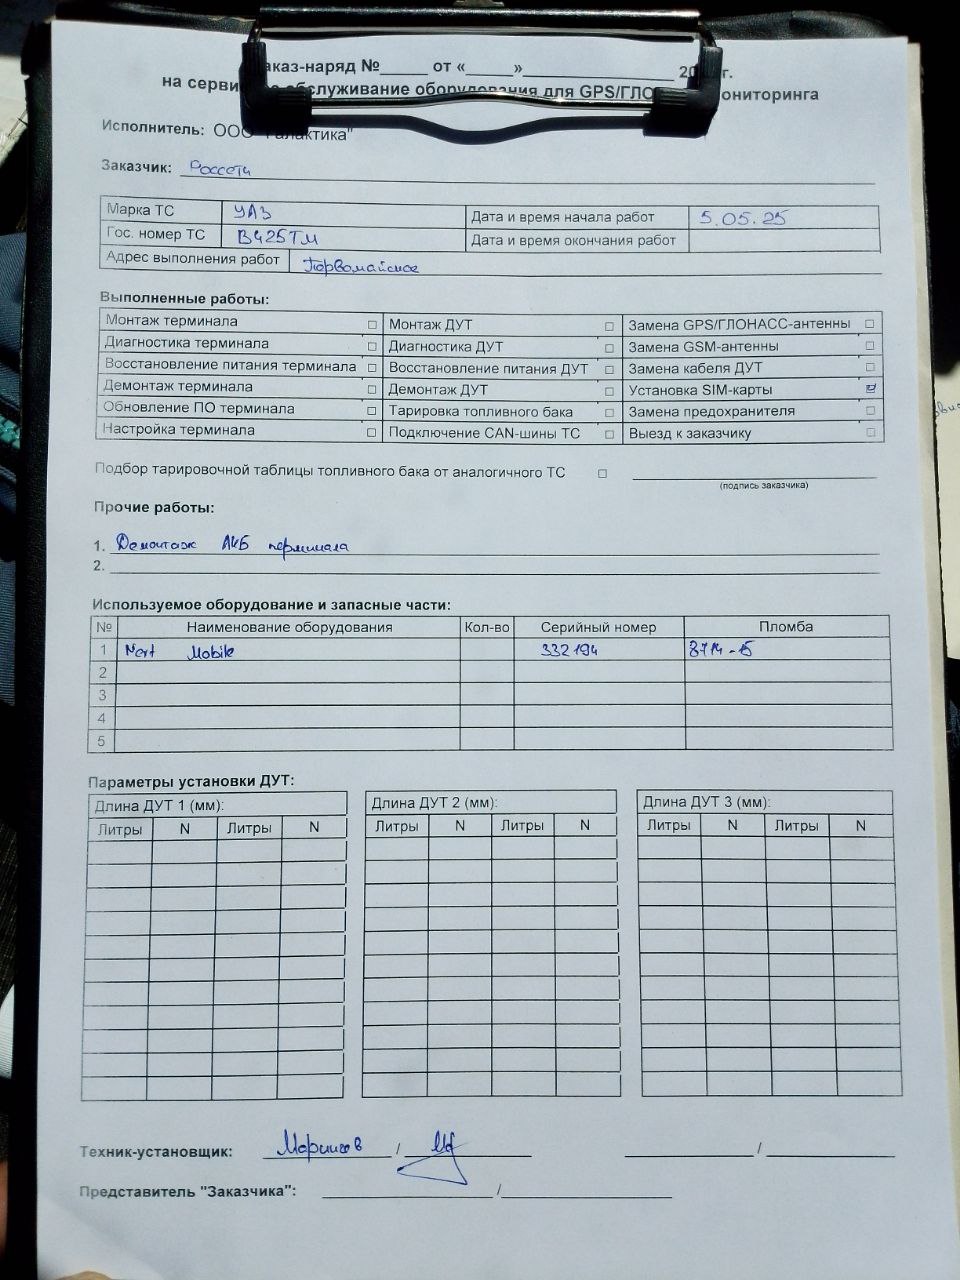 аказ-наряд №_____ от «_____»_________________ 20 г.
на серви обслуживание оборудования для GPS/ГЛО ониторинга
Исполнитель: ООО "Галактика"
Заказчик: Россети
Марка ТС УАЗ Дата и время начала работ 5.05.25
Гос. номер ТС В425ТМ Дата и время окончания работ
Адрес выполнения работ Первомайское
Выполненные работы:
Монтаж терминала ☐ Монтаж ДУТ ☐ Замена GPS/ГЛОНАСС-антенны ☐
Диагностика терминала ☐ Диагностика ДУТ ☐ Замена GSM-антенны ☐
Восстановление питания терминала ☐ Восстановление питания ДУТ ☐ Замена кабеля ДУТ ☐
Демонтаж терминала ☐ Демонтаж ДУТ ☐ Установка SIM-карты ☑
Обновление ПО терминала ☐ Тарировка топливного бака ☐ Замена предохранителя ☐
Настройка терминала ☐ Подключение CAN-шины ТС ☐ Выезд к заказчику ☐
Подбор тарировочной таблицы топливного бака от аналогичного ТС ☐
(подпись заказчика)
Прочие работы:
1. Демонтаж АКБ терминала
2.
Используемое оборудование и запасные части:
№ Наименование оборудования Кол-во Серийный номер Пломба
1 Mobile 332194
2
3
4
5
Параметры установки ДУТ:
Длина ДУТ 1 (мм): Длина ДУТ 2 (мм): Длина ДУТ 3 (мм):
Литры N Литры N Литры N Литры N Литры N Литры N
Техник-установщик: /
Представитель "Заказчика": /